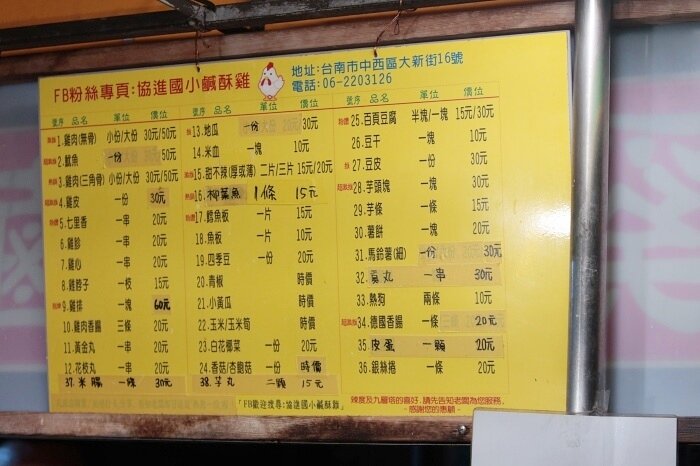 FB粉絲專頁:協進國小鹹酥雞
地址:台南市中西區大新街16號
電話:06-2203126
號序 品名 單位 價位
1.雞肉(無骨) 小份/大份 30元/50元
2.魷魚 一份 50元
3.雞肉(三角骨) 小份/大份 30元/50元
4.雞皮 一份 30元
5.七里香 一串 20元
6.雞胗 一串 20元
7.雞心 一串 20元
8.雞脖子 一枝 15元
9.雞排 一塊 60元
10.雞肉香腸 三條 20元
11.黃金丸 一串 20元
12.花枝丸 一串 20元
37.米腸 一條 30元
號序 品名 單位 價位
13.地瓜 一份 30元
14.米血 一塊 10元
15.甜不辣(厚或薄) 二片/三片 15元/20元
16.柳葉魚 1條 15元
17.鱈魚板 一片 15元
18.魚板 一片 10元
19.四季豆 一份 20元
20.青椒 時價
21.小黃瓜 時價
22.玉米/玉米筍 時價
23.白花椰菜 一份 20元
24.香菇/杏鮑菇 一份 時價
38.芋丸 二顆 15元
號序 品名 單位 價位
25.百頁豆腐 半塊/一塊 15元/30元
26.豆干 一塊 10元
27.豆皮 一份 30元
28.芋頭塊 一塊 30元
29.芋條 一條 15元
30.薯餅 一塊 20元
31.馬鈴薯(細) 一份 30元
32.貢丸 一串 30元
33.熱狗 兩條 10元
34.德國香腸 一條 20元
35.皮蛋 一顆 20元
36.銀絲捲 一條 20元
「FB歡迎搜尋:協進國小鹹酥雞」
辣度及九層塔的喜好,請先告知老闆為您服務.
-感謝您的惠顧-